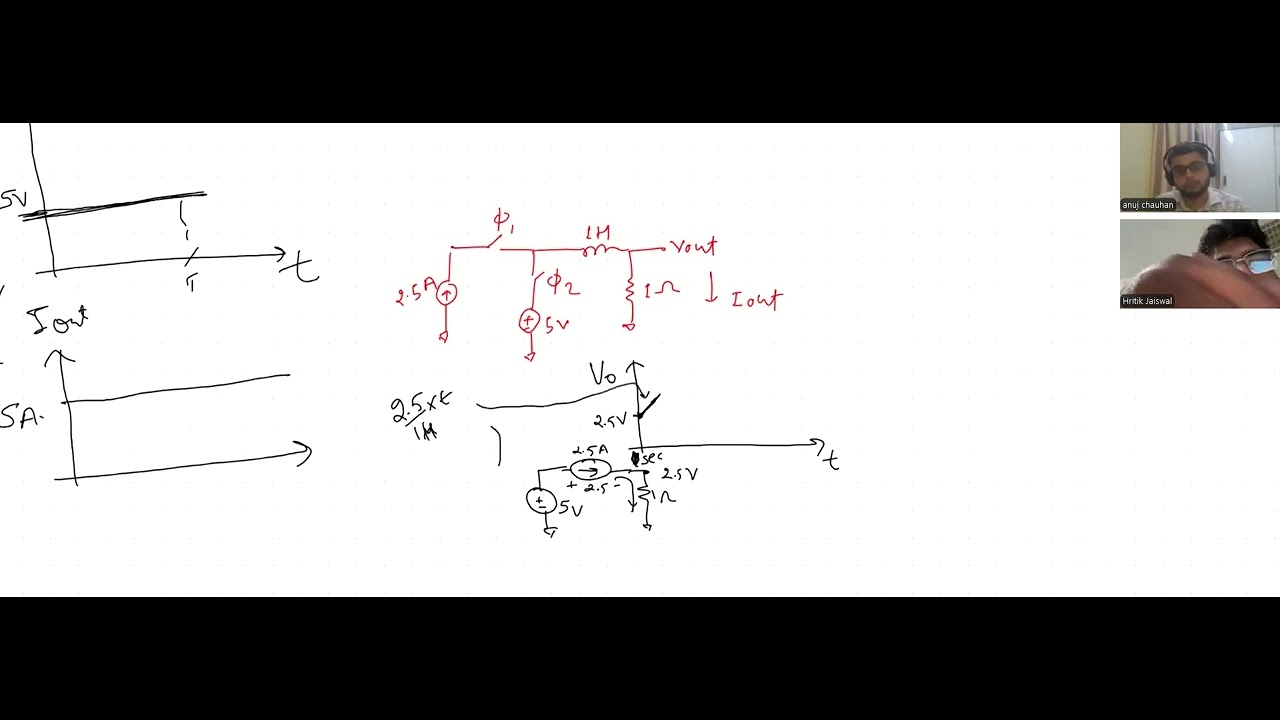 5V
T
t
Iout
5A.
Φ1
1H
Vout
2.5A
Φ2
1Ω
Iout
5V
Vo
2.5xt
1H
2.5V
sec
t
2.5A
2.5V
+ 2.5 -
1Ω
5V
anuj chauhan
Hritik Jaiswal